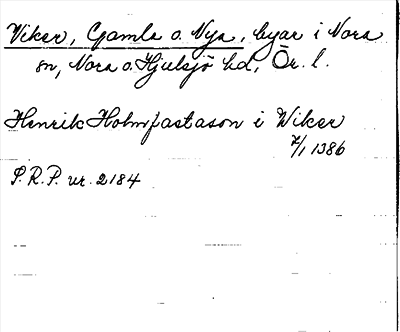 Viker, Gamla o. Nya, byar i Nora
sn, Nora o. Hjulsjö hd, Ör. l.
Henrik Holmfastason i Wiker
7/1 1386
S.R.P. nr. 2184